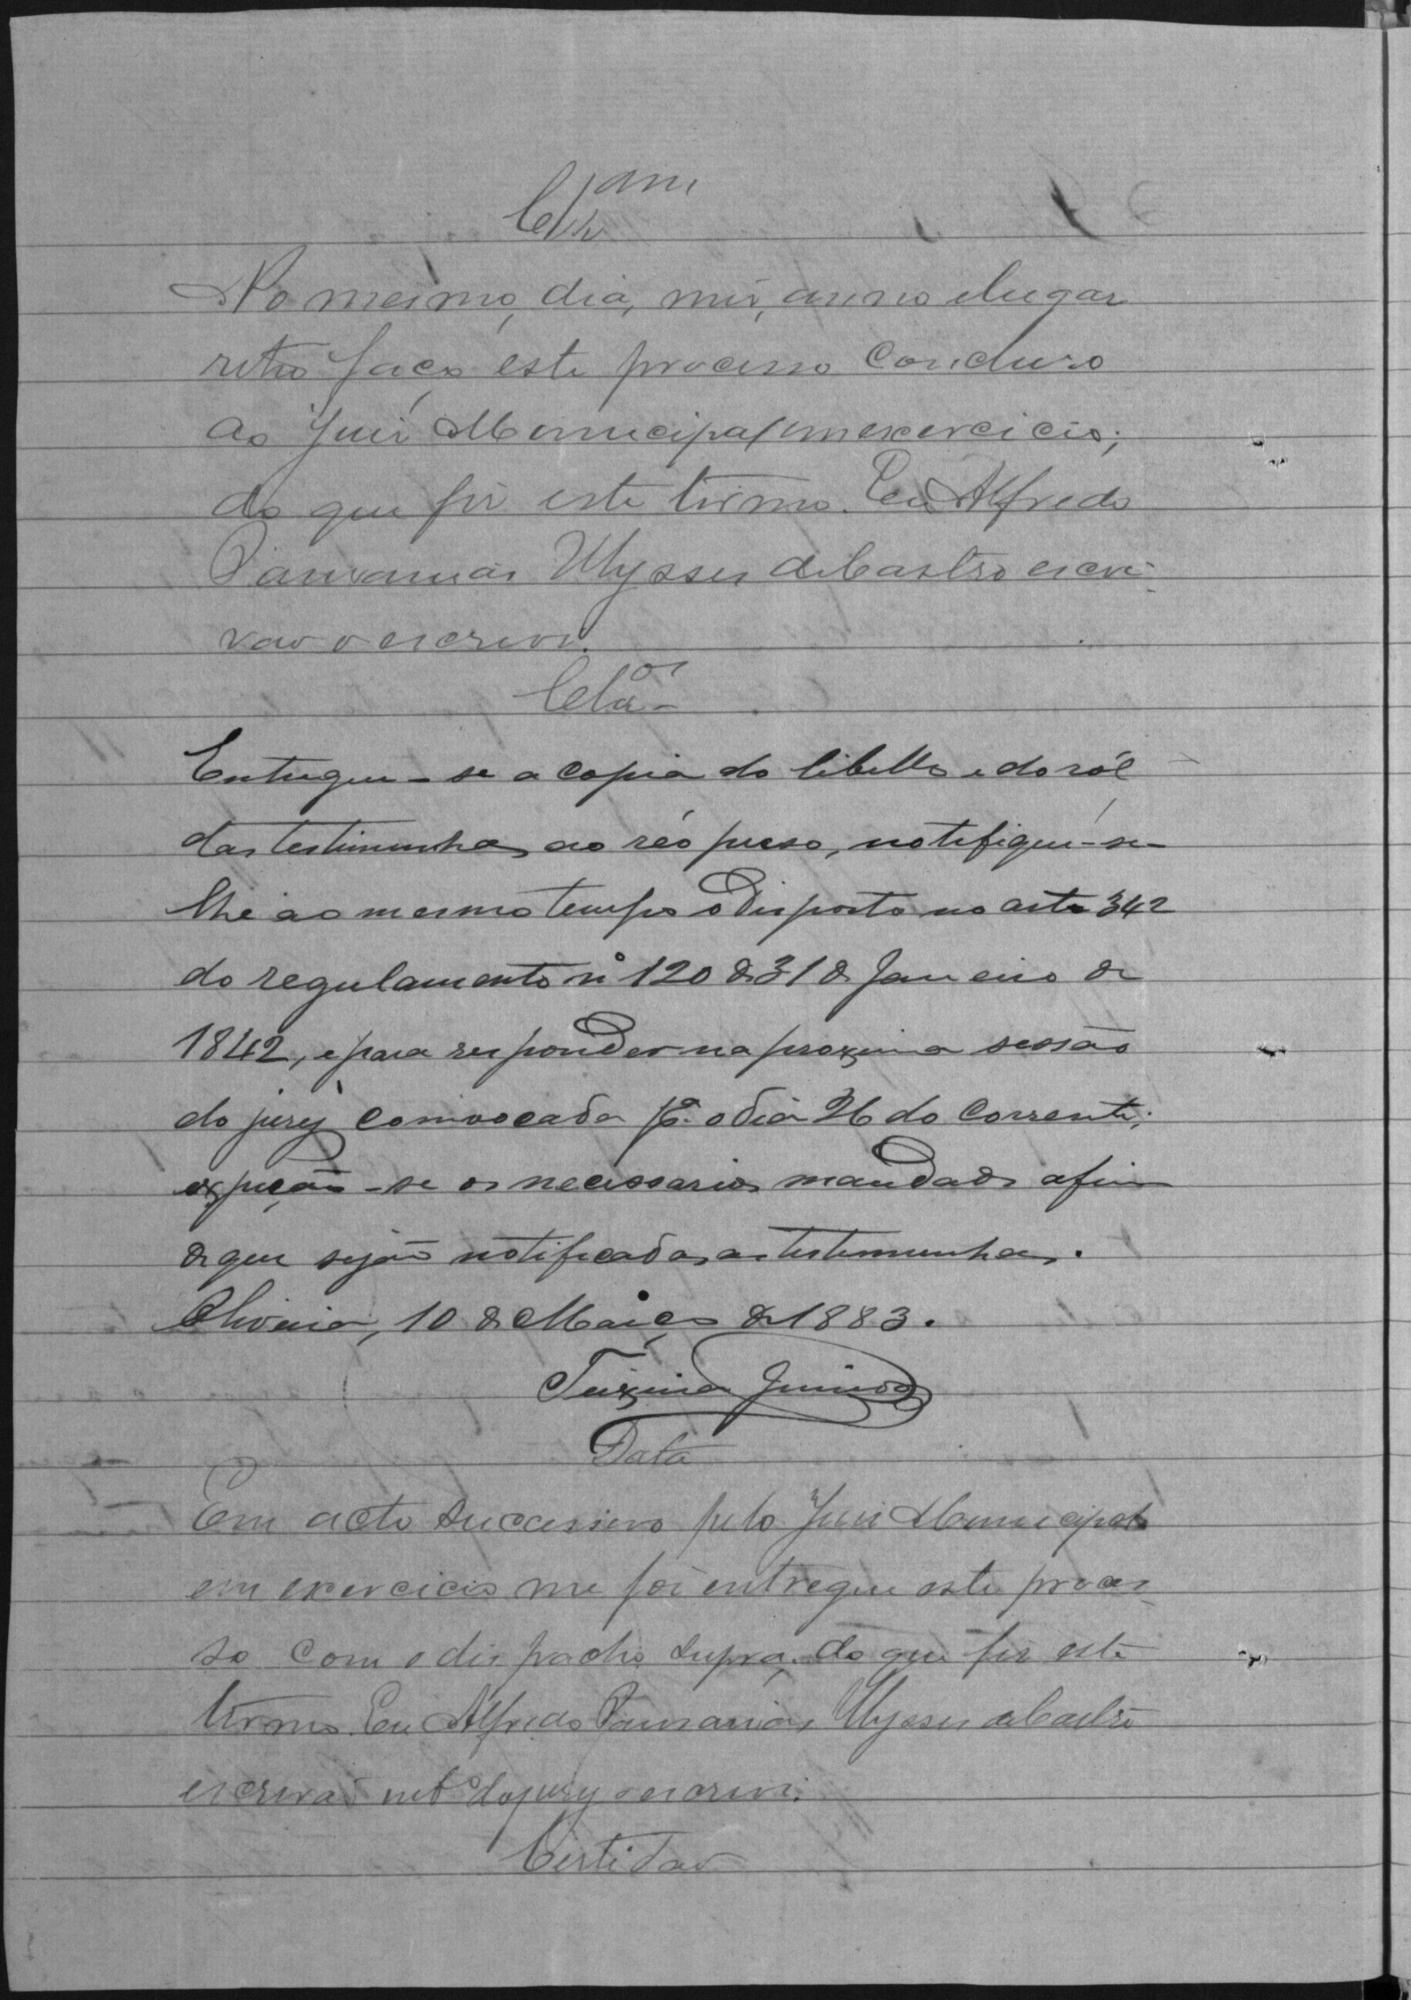 Clsam
No mesmo, dia, mes, anno e lugar
retro faço este processo concluso
ao Juiz Municipal em exercicio;
do que fiz este termo. Eu Alfredo
Pausanias Ulysses de Castro escri-
vão o escrevi.
Clos
Entregue-se a copia do libello e do ról
das testimunhas ao réo preso, notifique-se-
lhe ao mesmo tempo o disposto no arto 342
do regulamento nº 120 de 31 de Janeiro de
1842, e para responder na proxima sessão
do jury convocada pª. o dia 26 do corrente;
expeção-se os necessarios mandados afim
de que sejão notificadas as testemunhas.
Oliveira, 10 de Março de 1883.
Teixeira Junior
Data
Em acto successivo pelo Juiz Municipal
em exercicio me foi entregue este proces-
so com o despacho supra, do que fiz este
termo. Eu Alfredo Pausanias Ulysses de Castro
escrivão intº do jury o escrevi.
Certidão